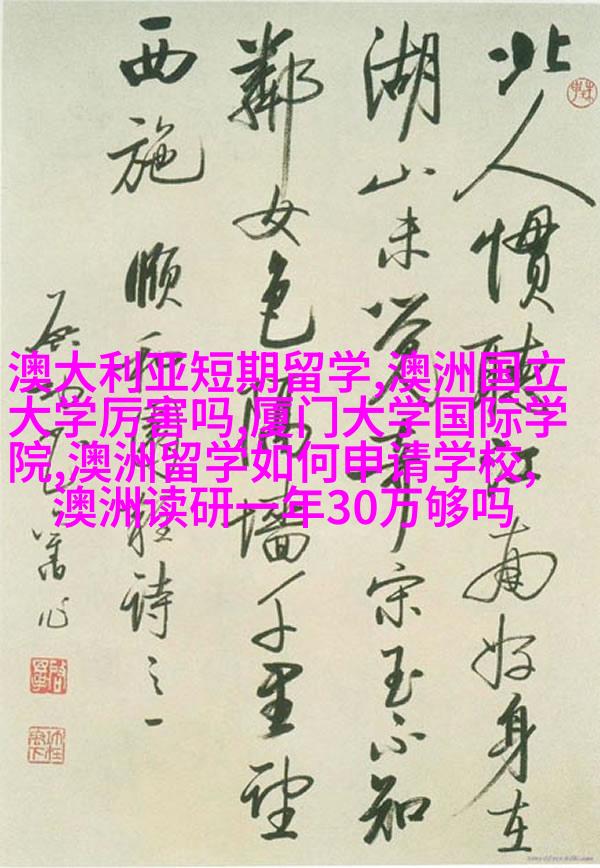 北人慣聽江南好身在
湖山未覺奇宋玉不知
鄰女色隔墻千里望
西施 順和 程詩之一
舊作
澳大利亚短期留学,澳洲国立
大学厉害吗,厦门大学国际学
院,澳洲留学如何申请学校,
澳洲读研一年30万够吗